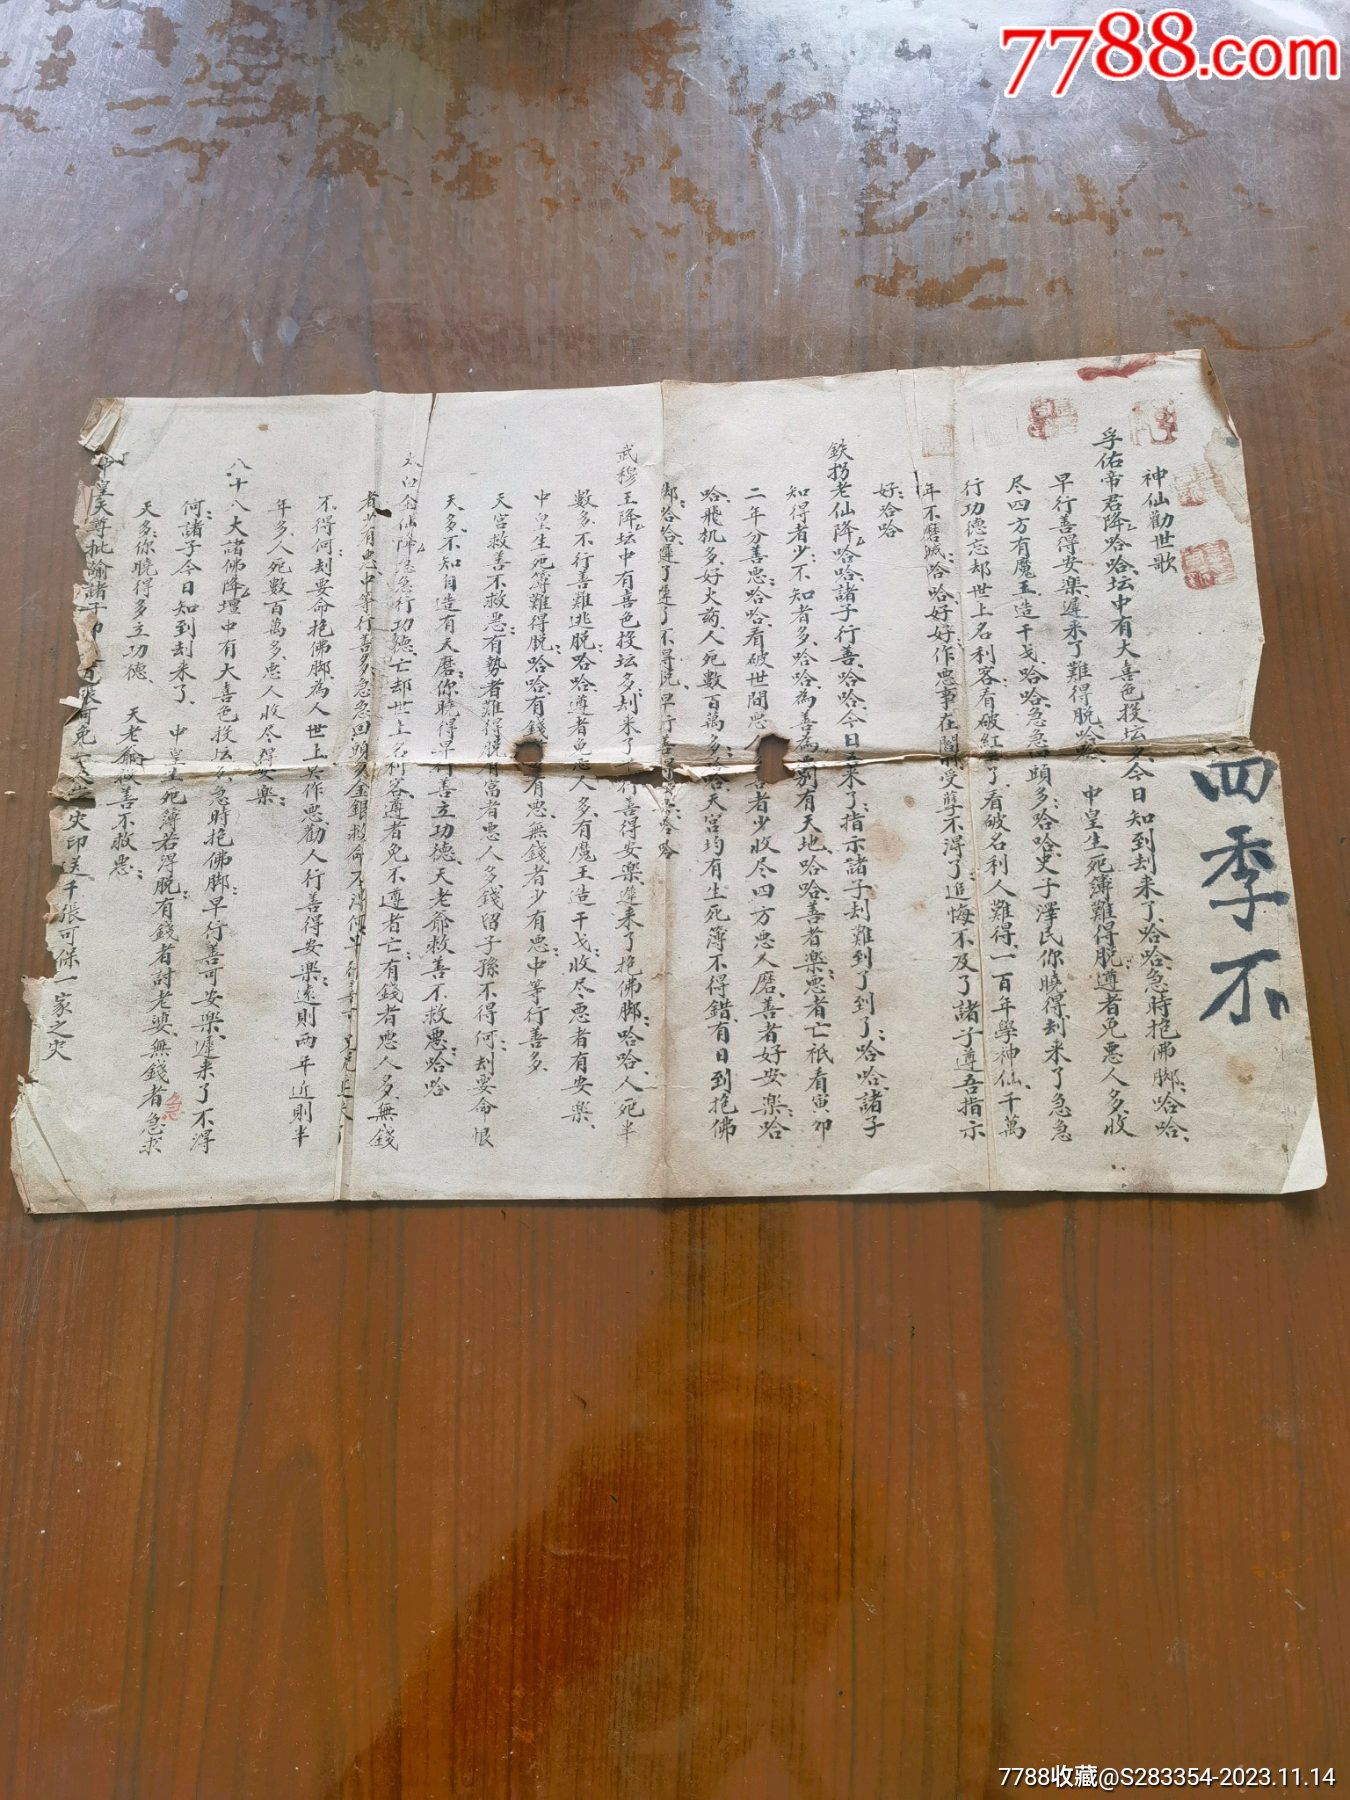 7788.com
四季不
神仙勸世歌
孚佑帝君降、哈哈坛中有大喜色投坛多、今日知到刦来了、哈哈急時抱佛脚、哈哈、
早行善得安樂、遲来了難得脱哈 中皇生死簿難得脱、遵者免惡人多、收
尽四方有魔王、造干戈、哈哈、急急回頭多、哈哈、史子澤民你曉得刦来了急急
行功德忘却世上名利客、看破紅 了看破名利人難得、一百年學神仙、千萬
年不磨滅、哈哈好好、作惡事在閻 受孽不淂了追悔不及了諸子遵吾指示
好、哈哈
鉄拐老仙降、哈哈諸子行善、哈哈、今日 来了、指示諸子刦難到了到了、哈哈、諸子
知得者少、不知者多、哈哈、為善為惡别有天地、哈哈、善者樂、惡者亡、祇看寅卯
二年分善惡、哈哈、看破世間惡人多善者少收尽四方惡人磨、善者好安樂、哈
哈、飛机多、好火药、人死数百萬多、哈哈天宫均有生死簿不得錯、有日到抱佛
脚、哈哈、遲了遲了不得脱、早行善得 哈哈
武穆王降、坛中有喜色投坛多、刦来了、行善得安樂、遲来了抱佛脚、哈哈、人死半
數多、不行善難逃脱、哈哈、遵者免惡人多、有魔王造干戈、收尽惡者有安樂、
中皇生死簿難得脱、哈哈、有錢 有惡、無錢者少有惡、中等行善多、
天宫救善不救惡、有勢者難得脱有富者惡人多錢留子孫不得何、刦要命恨
天多、不知自造有天磨、你曉得早行善立功德、天老爺救善不救惡、哈哈
太白金仙降、急急行功德、亡却世上名利客、遵者免不遵者亡、有錢者惡人多、無錢
者少有惡、中等行善多、急急回頭多、金銀救命不得
不得何、刦要命抱佛脚、為人世上只作惡、勸人行善得安樂、遠則两年近則半
年多、人死數百萬多、惡人收尽得安樂、
八十八大諸佛降壇中有大喜色投坛多、急時抱佛脚、早行善可安樂、遲来了不淂
何、諸子今日知到刦来了、中皇生死簿若淂脱、有錢者討老婆、無錢者急求
急
天多、你曉得多立功德 天老爺救善不救惡、
中皇天尊批諭諸子印 張可免 灾印送千張可保一家之灾
7788收藏@S283354-2023.11.14